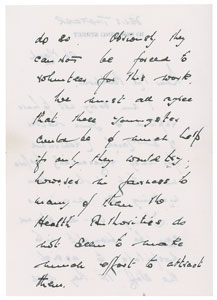 do so. Obviously they
can not be forced to
volunteer for this work.
We must all agree
that these youngsters
could be of much help
if only they would try,
however in fairness to
many of them the
Health Authorities do
not seem to make
much effort to attract
them.